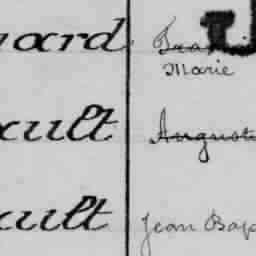 uard
Marie
ault August
ault Jean Bap